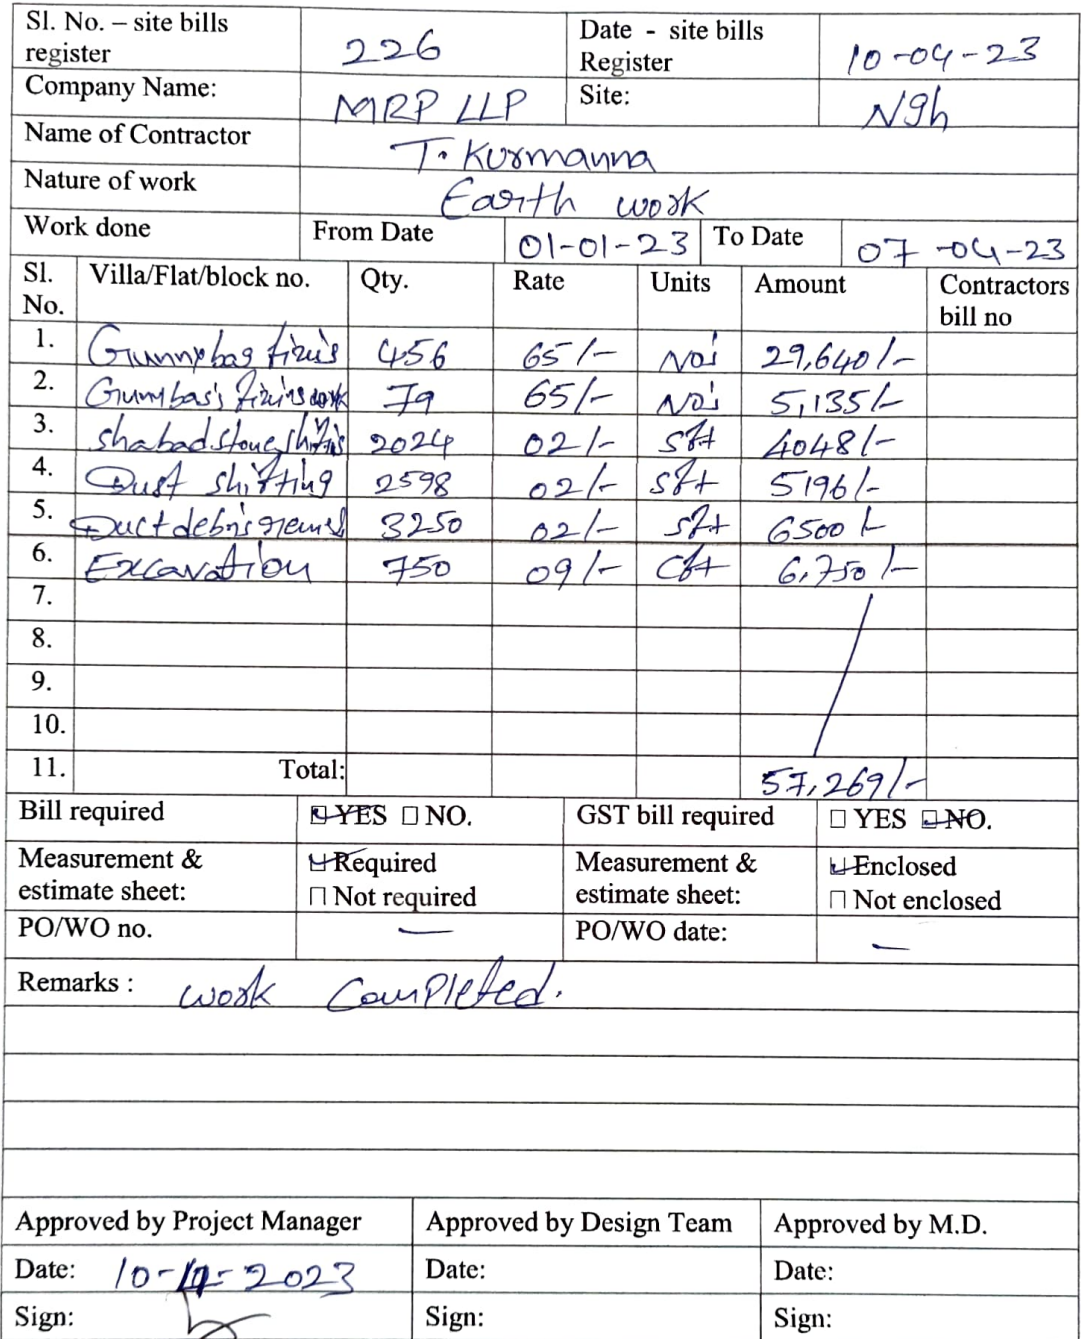 Sl. No. – site bills register 226 Date - site bills Register 10-04-23
Company Name: MRP LLP Site: Ngh
Name of Contractor T. Kurmanna
Nature of work Earth work
Work done From Date 01-01-23 To Date 07-04-23
Sl. No. Villa/Flat/block no. Qty. Rate Units Amount Contractors bill no
1. Gunnybag 456 65/- Nos 29,640/-
2. 79 65/- Nos 5,135/-
3. Shabad stone 2024 02/- sft 4048/-
4. Dust shifting 2598 02/- sft 5196/-
5. Duct debris 3250 02/- sft 6500/-
6. Excavation 750 09/- Cft 6,750/-
7.
8.
9.
10.
11. Total: 57,269/-
Bill required YES NO. GST bill required YES NO.
Measurement & estimate sheet: Required Measurement & estimate sheet: Enclosed
Not required Not enclosed
PO/WO no. — PO/WO date: —
Remarks : work Completed.
Approved by Project Manager Approved by Design Team Approved by M.D.
Date: 2023 Date: Date:
Sign: Sign: Sign: